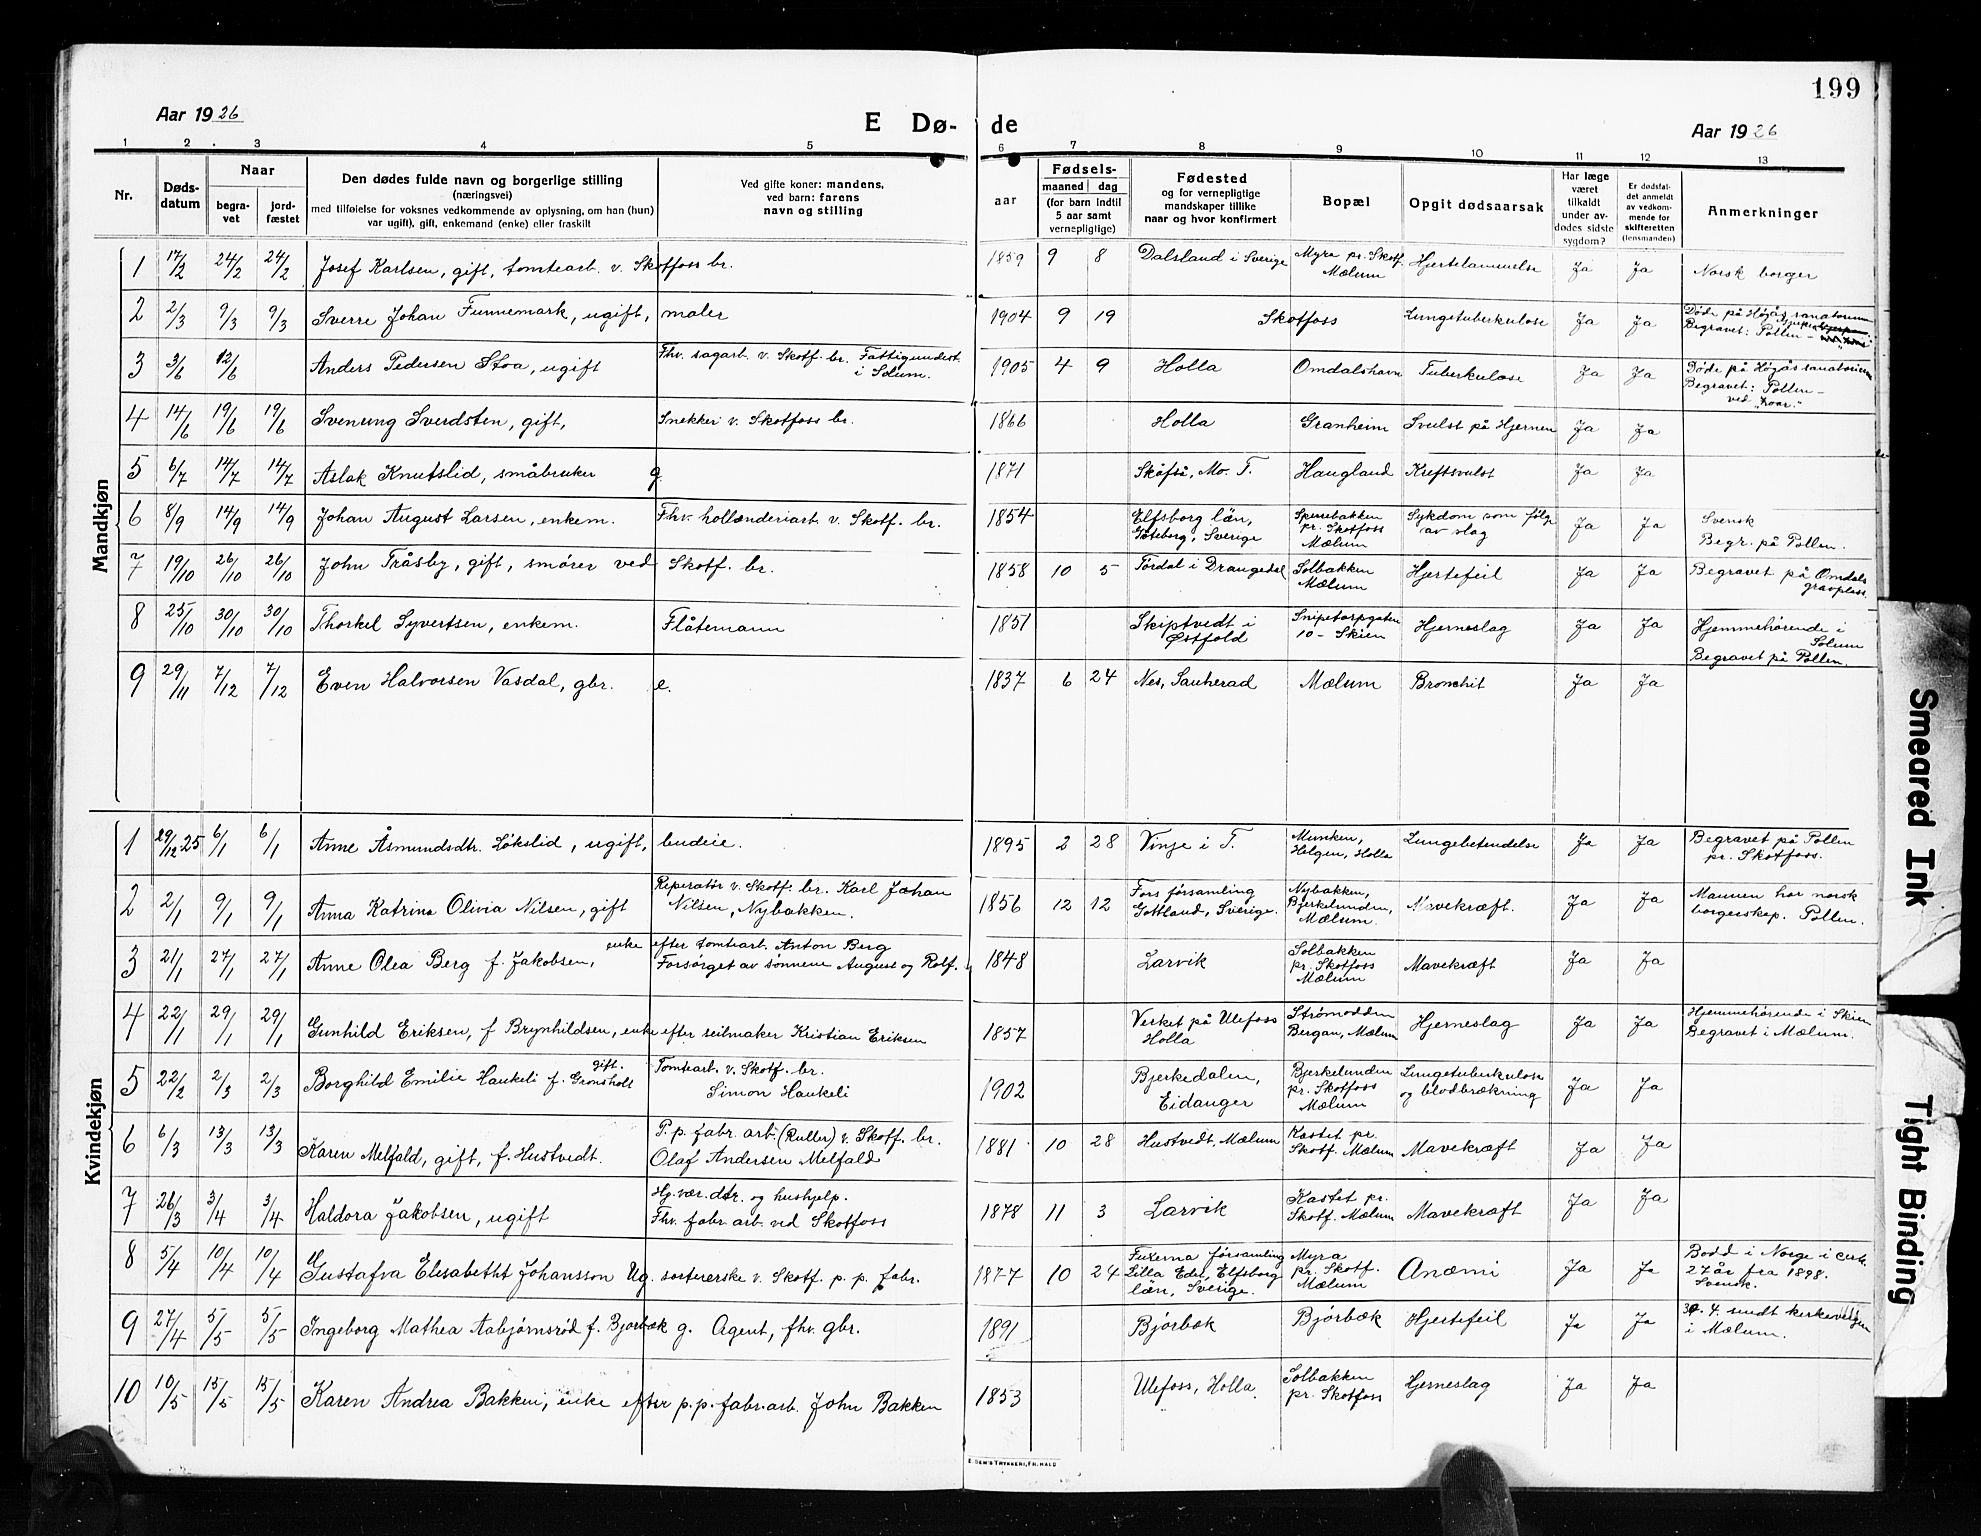 199
Aar 1926
E Dø-
de
Aar 1926
1 2. 3 4 5 6 7 8 9 10 11 12 13
Nr.
Døds-
datum
Naar
begra-
vet
jord-
fæstet
Den dødes fulde navn og borgerlige stilling
(næringsvei)
med tilføielse for voksnes vedkommende av oplysning, om han (hun)
var ugift), gift, enkemand (enke) eller fraskilt
Ved gifte koner: mandens,
ved barn: farens
navn og stilling
aar
Fødsels-
maaned dag
(for barn indtil
5 aar samt
vernepligtige)
Fødested
og for vernepligtige
mandskaper tillike
naar og hvor konfirmert
Bopæl
Opgit dødsaarsak
Har læge
været
tilkaldt
under av-
dødes sidste
sygdom?
Er dødsfal-
det anmeldt
av vedkom-
mende for
skifteretten
(lensmanden)
Anmerkninger
Mandkjøn
1 17/2 24/2 24/2 Josef Karlsen, gift, tomtearb. v. Skotfoss br. 1859 9 8 Dalsland i Sverige Myra pr. Skotf. Hjertelammelse Ja Ja Norsk borger
Mælum
2 2/3 9/3 9/3 Sverre Johan Funnemark, ugift, maler 1904 9 19 Skotfoss Lungetuberkulose Ja Ja Døde på Høgås sanatorium
Begravet: Pollen-
3 3/6 12/6 Anders Pedersen Stoa, ugift Fhv. sagarb. v. Skotf. br. Fattigunderst. 1905 4 9 Holla Omdalshavn Tuberkulose Ja Ja Døde på Høgås sanatorium
i Solum. Begravet: Pollen-
ved
4 14/6 19/6 19/6 Svenung Sverdsten, gift, Snekker v. Skotfoss br. 1866 Holla Granheim Svulst på Hjernen Ja Ja
5 6/7 14/7 14/7 Aslak Knutslid, småbruker g. 1871 Skåfså, Mo. T. Haugland Kreftsvulst Ja Ja
6 8/9 14/9 14/9 Johan August Larsen, enkem. Fhv. hollænderiarb. v. Skotf. br. 1854 Elfsborg län, Sykdom som følge Ja Ja Svensk
Göteborg, Sverige pr. Skotfoss av slag Begr. på Pollen.
Mælum
7 19/10 26/10 26/10 John Tråsby, gift, smører ved Skotf. br. 1858 10 5 Tørdal i Drangedal Solbakken Hjertefeil Ja Ja Begravet på Omdals
Mælum gravplass
8 25/10 30/10 30/10 Thorkel Syvertsen, enkem. Fløtemann 1851 Skiptvedt i Snipetorpgaten Hjerneslag Ja Ja Hjemmehørende i
Østfold 10- Skien Solum
Begravet på Pollen.
9 29/11 7/12 7/12 Even Halvorsen Vasdal, gbr. e. 1837 6 24 Nes, Sauherad Mælum Bronchit Ja Ja
Kvindekjøn
1 29/12 25 6/1 6/1 Anne Åsmundsdtr. Løkslid, ugift, budeie. 1895 2 28 Vinje i T. Munken, Lungebetendelse Ja Ja Begravet på Pollen
Helgen, Holla pr. Skotfoss.
2 2/1 9/1 9/1 Anna Katrina Olivia Nilsen, gift Reperatør v. Skotf. br. Karl Johan 1856 12 12 Fors församling Nybakken, Mavekræft. Ja Ja Mannen har norsk
Nilsen, Nybakken. Gottland, Sverige. Bjerkelunden, borgerskap. Pollen.
Mælum.
3 21/1 27/1 27/1 Anne Olea Berg f. Jakobsen, enke efter tomtearb. Anton Berg 1848 Larvik Solbakken Mavekræft Ja Ja
Forsørget av sønnene August og Rolf. pr. Skotfoss
Mælum
4 22/1 29/1 29/1 Gunhild Eriksen, f. Brynhildsen, enke efter seilmaker Kristian Eriksen 1857 Verket på Ulefoss Strømodden Hjerneslag Ja Ja Hjemmehørende i Skien
Holla Bergan, Mælum Begravet i Mælum.
5 22/2 2/3 2/3 Borghild Emilie Haukeli f. Gronsholt gift. Tomtearb. v. Skotf. br. 1902 Bjerkedalen, Bjerkelunden Lungetuberkulose Ja Ja
Simon Haukeli Eidanger pr. Skotfoss og blodbrækning
Mælum
6 6/3 13/3 13/3 Karen Melfald, gift, f. Hustvedt. P. p. fabr. arb. (Ruller) v. Skotf. br. 1881 10 28 Hustvedt, Mælum Kastet pr. Mavekræft Ja Ja
Olaf Andersen Melfald Skotf. Mælum
7 26/3 3/4 3/4 Haldora Jakobsen, ugift Hj. vær. dtr. og hushjelp. 1878 11 3 Larvik Kastet pr. Mavekræft Ja Ja
Fhv. fabr. arb. ved Skotfoss Skotf. Mælum
8 5/4 10/4 10/4 Gustafva Elisabetht Johansson Ug. sortererske v. Skotf. p. p. fabr. 1877 10 24 Fuxerna församling Myra Anæmi Ja Ja Bodd i Norge i cirk.
Lilla Edet, Elfsborg pr. Skotf. 27 år fra 1898.
län, Sverige. Mælum Svensk.
9 27/4 5/5 5/5 Ingeborg Mathea Aabjørnsrød f. Bjørbæk g. Agent, fhv. gbr. 1891 Bjørbæk Bjørbæk Hjertefeil Ja Ja 30. 4. meldt kirkevergen
i Mælum.
10 10/5 15/5 15/5 Karen Andrea Bakken, enke efter p. p. fabr. arb. John Bakken 1853 Ulefoss, Holla Solbakken Hjerneslag Ja Ja
pr. Skotfoss
E. SEM'S TRYKKERI, FR.HALD
Smeared Ink
Tight Binding